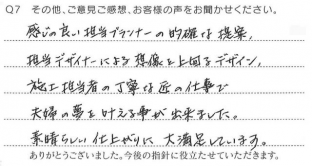 Q7 その他、ご意見ご感想、お客様の声をお聞かせください。
感じの良い担当プランナーの的確な提案、
担当デザイナーによる想像を上回るデザイン、
施工担当者の丁寧な匠の仕事で
夫婦の夢を叶える事が出来ました。
素晴らしい仕上がりに大満足しています。
ありがとうございました。今後の指針に役立たせていただきます。